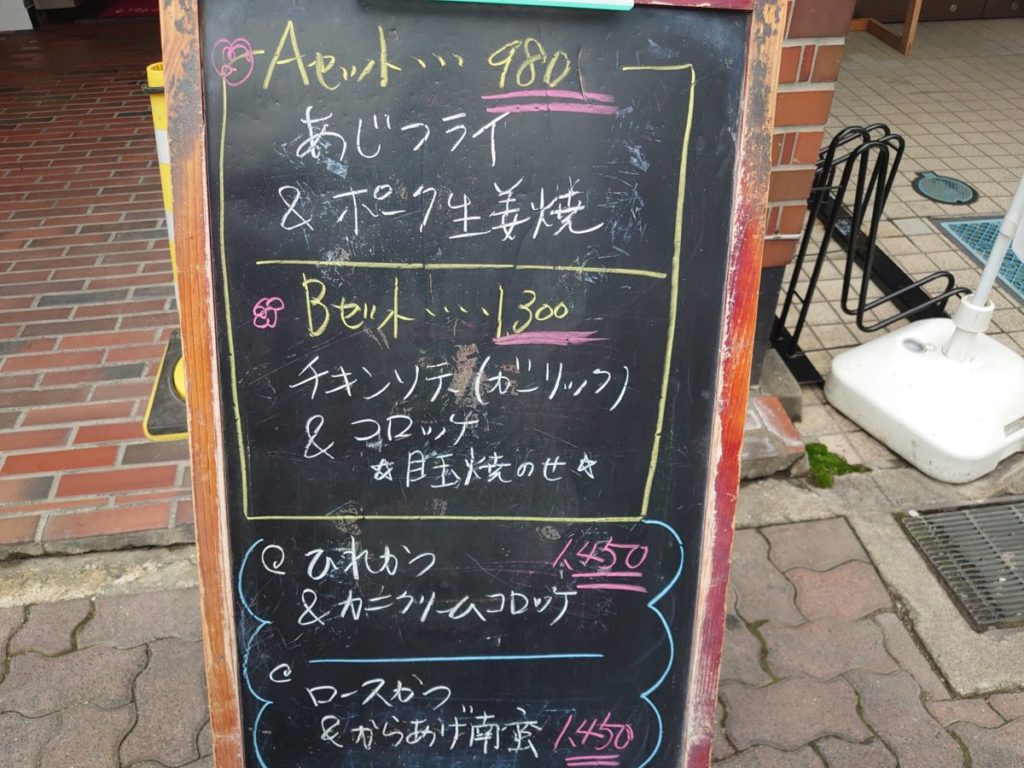 Aセット・・・980
あじフライ
&ポーク生姜焼
Bセット・・・・1,300
チキンソテー(ガーリック)
&コロッケ
☆目玉焼のせ☆
ひれかつ 1,450
&カニクリームコロッケ
ロースかつ
&からあげ南蛮 1,450